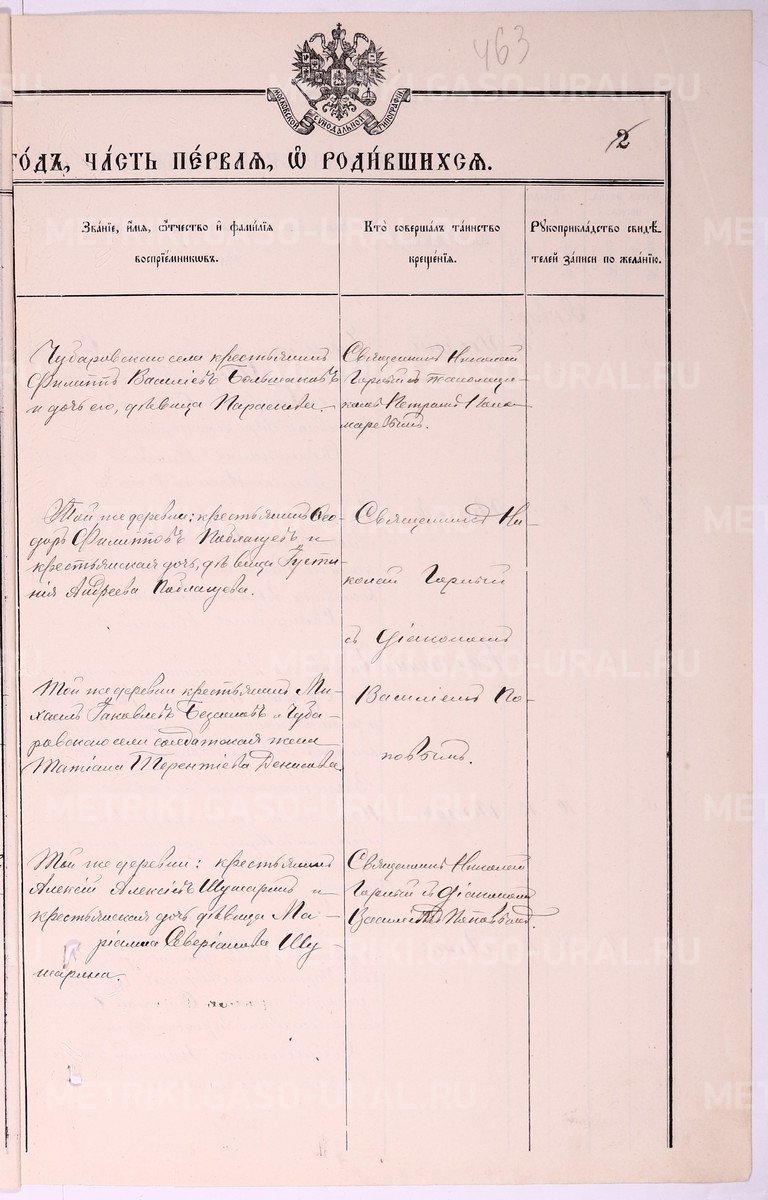 463
МОСКОВСКОЙ СѴНОДАЛЬНОЙ ТИПОГРАФІИ
2
ГО́ДЪ, ЧА́СТЬ ПЕ́РВАѦ, Ѽ РОДИ́ВШИХСѦ.
Зва́нїе, и҆́мѧ, ѻ҆́тчество и҆ фамѵ́лїѧ
воспрїе́мникѡвъ.
Кто̀ соверша́лъ та́инство
креще́нїѧ.
Рꙋкоприкла́дство свидѣ́-
телей за́писи по жела́нїю.
Чубаровскаго села крестьянинъ
Филиппъ Васильевъ Большаковъ
и дочь его, дѣвица Параскева.
Священникъ Николай
Горныхъ
комъ Петромъ Поно-
маревымъ.
Той же деревни: крестьянинъ Ѳео-
доръ Филипповъ и
крестьянская дочь, дѣвица Густи-
нія Андреева
Священникъ Ни-
колай
съ діакономъ
Василіемъ По-
повымъ.
Той же деревни крестьянинъ Ми-
хаилъ Іаковлевъ и Чуба-
ровскаго села солдатская жена
Татіана Терентіева Денисова.
Той же деревни: крестьянинъ
Алексій Алексіевъ и
крестьянская дочь дѣвица Ма-
ріамна Северіанова
Священникъ Николай
съ діакономъ
Василіемъ Поповымъ.
METRIKI.GASO-URAL.RU